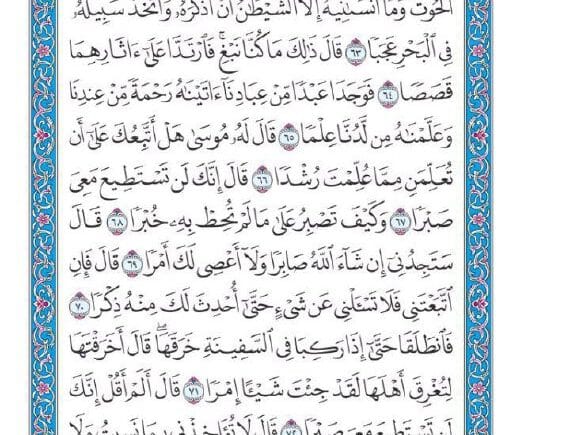 الْحُوتَ وَمَا أَنسَانِيهُ إِلَّا الشَّيْطَانُ أَنْ أَذْكُرَهُ وَاتَّخَذَ سَبِيلَهُ
فِي الْبَحْرِ عَجَبًا ٦٣ قَالَ ذَٰلِكَ مَا كُنَّا نَبْغِ ۚ فَارْتَدَّا عَلَىٰ آثَارِهِمَا
قَصَصًا ٦٤ فَوَجَدَا عَبْدًا مِّنْ عِبَادِنَا آتَيْنَاهُ رَحْمَةً مِّنْ عِندِنَا
وَعَلَّمْنَاهُ مِن لَّدُنَّا عِلْمًا ٦٥ قَالَ لَهُ مُوسَىٰ هَلْ أَتَّبِعُكَ عَلَىٰ أَن
تُعَلِّمَنِ مِمَّا عُلِّمْتَ رُشْدًا ٦٦ قَالَ إِنَّكَ لَن تَسْتَطِيعَ مَعِيَ
صَبْرًا ٦٧ وَكَيْفَ تَصْبِرُ عَلَىٰ مَا لَمْ تُحِطْ بِهِ خُبْرًا ٦٨ قَالَ
سَتَجِدُنِي إِن شَاءَ اللَّهُ صَابِرًا وَلَا أَعْصِي لَكَ أَمْرًا ٦٩ قَالَ فَإِنِ
اتَّبَعْتَنِي فَلَا تَسْأَلْنِي عَن شَيْءٍ حَتَّىٰ أُحْدِثَ لَكَ مِنْهُ ذِكْرًا ٧٠
فَانطَلَقَا حَتَّىٰ إِذَا رَكِبَا فِي السَّفِينَةِ خَرَقَهَا ۖ قَالَ أَخَرَقْتَهَا
لِتُغْرِقَ أَهْلَهَا لَقَدْ جِئْتَ شَيْئًا إِمْرًا ٧١ قَالَ أَلَمْ أَقُلْ إِنَّكَ
لَن تَسْتَطِيعَ مَعِيَ صَبْرًا ٧٢ قَالَ لَا تُؤَاخِذْنِي بِمَا نَسِيتُ وَلَا